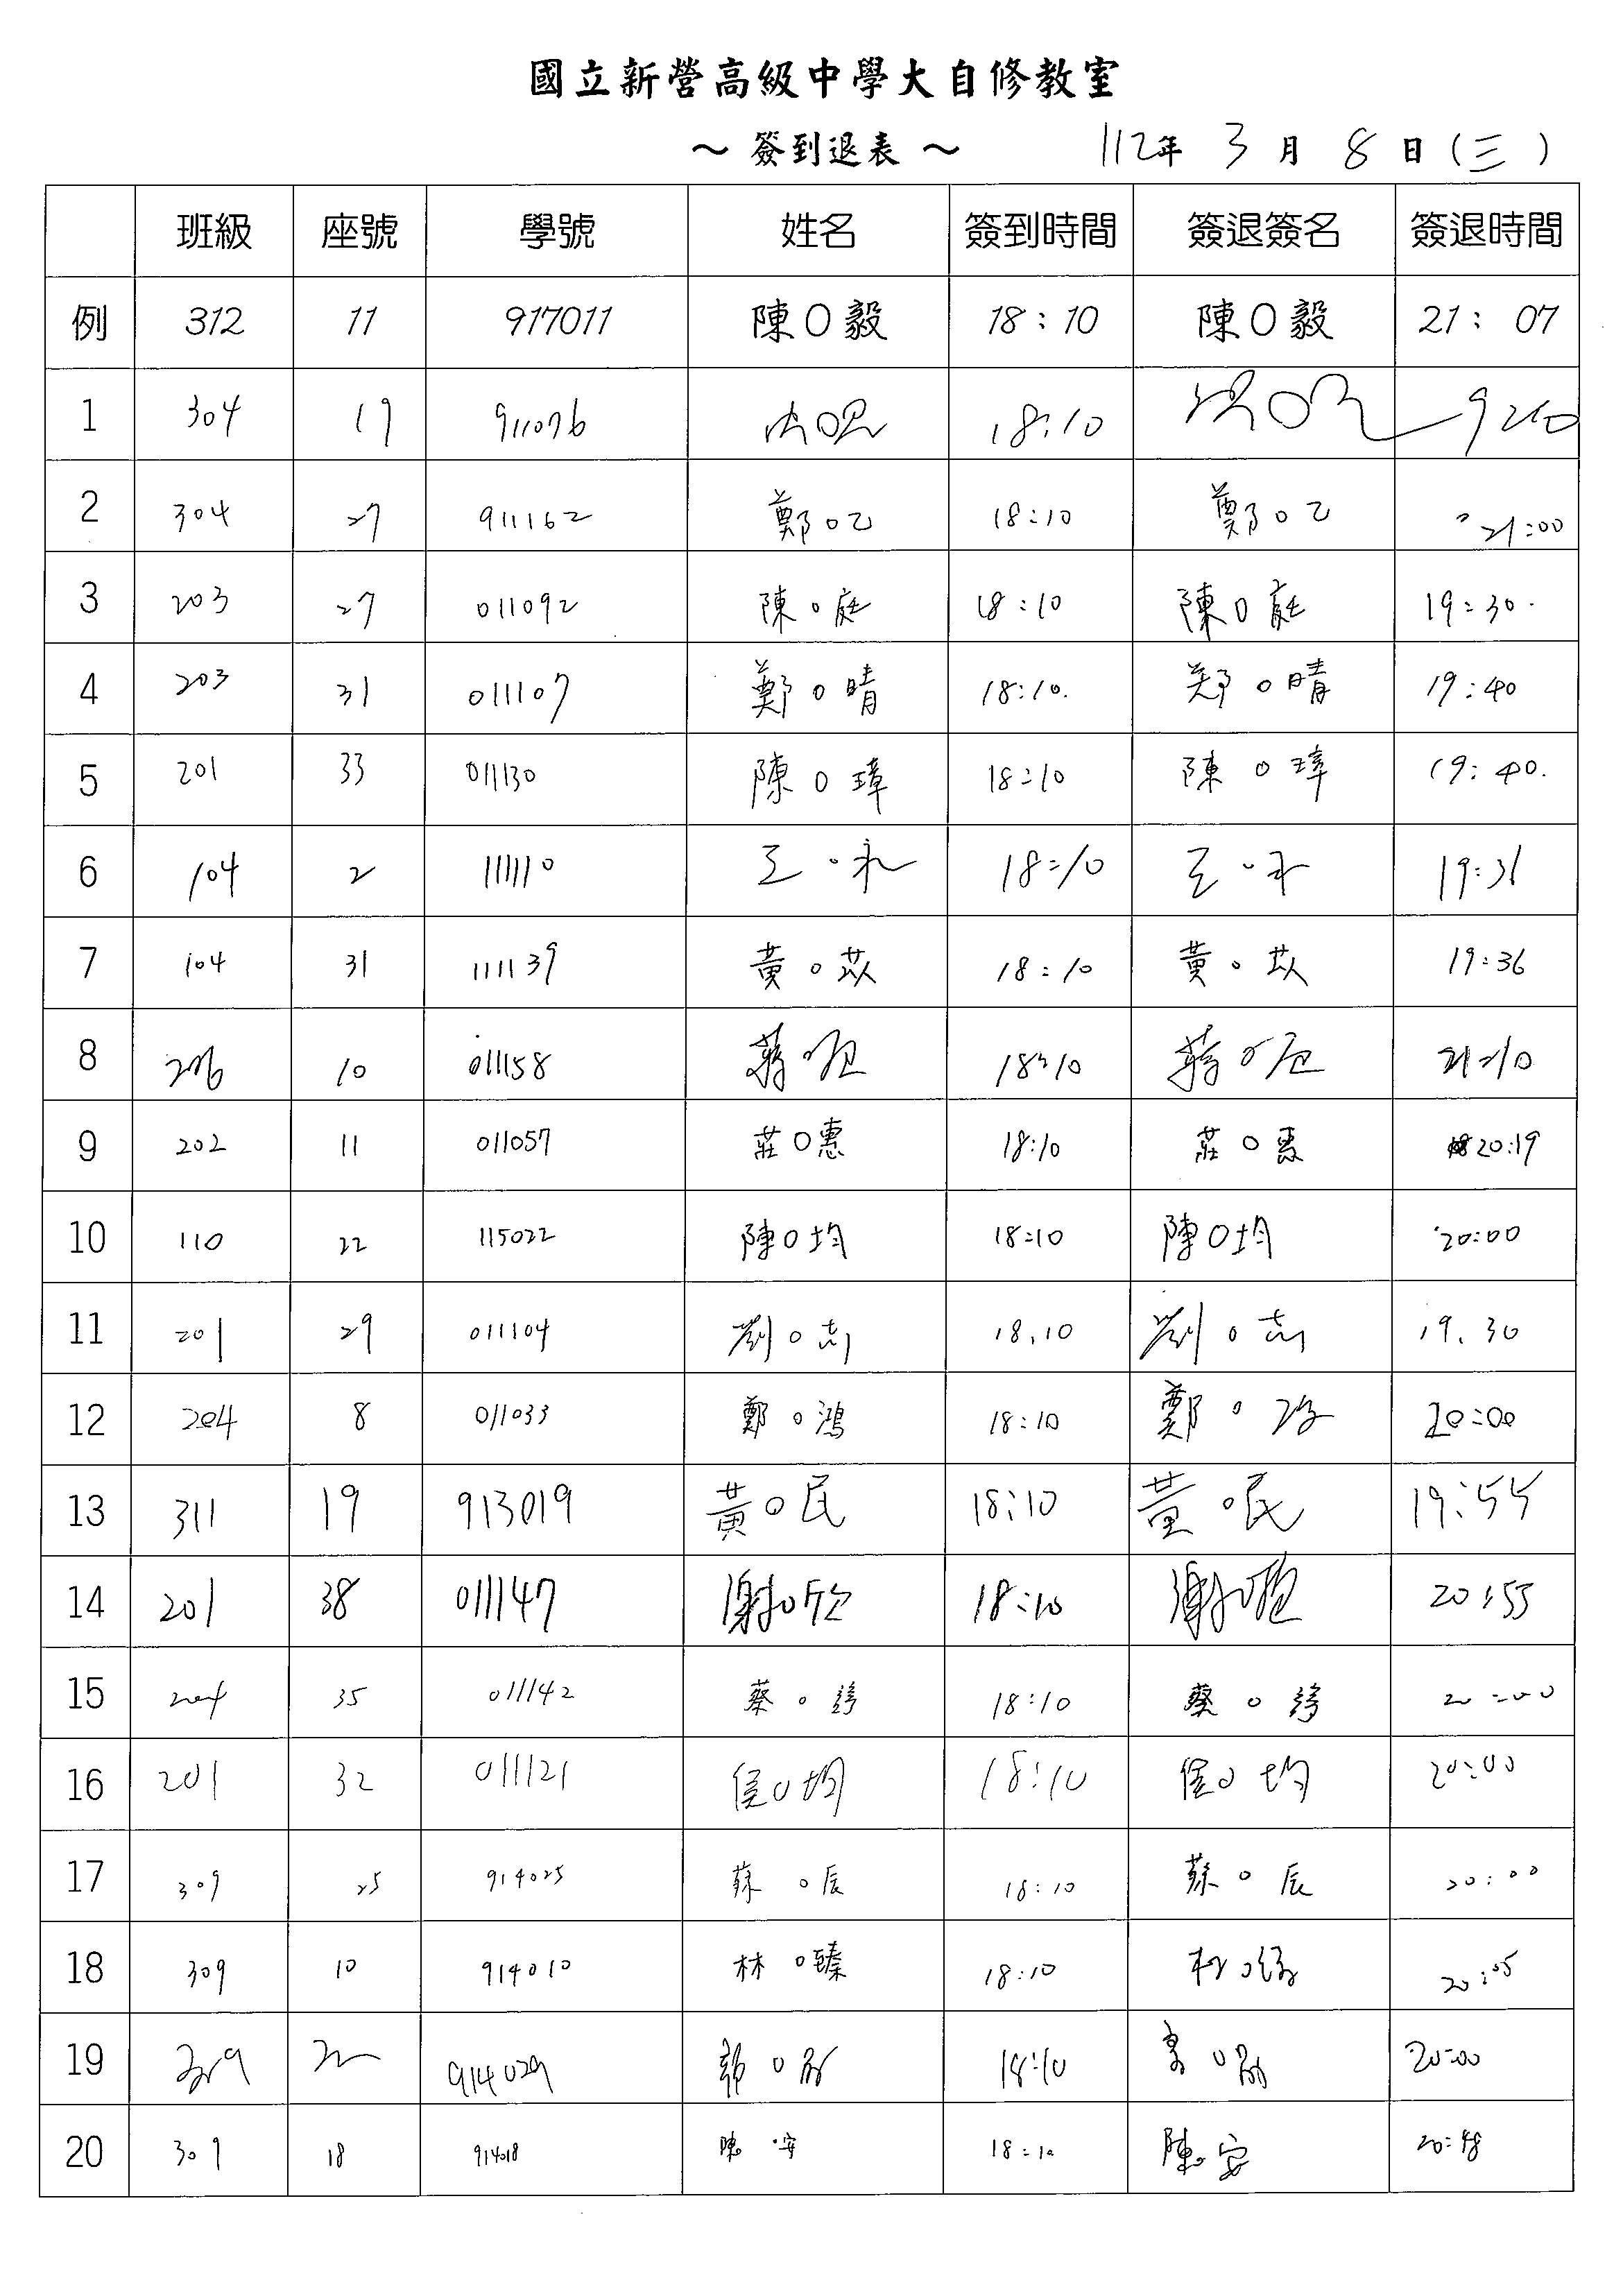 國立新營高級中學大自修教室
～ 簽到退表 ～ 112年 3 月 8 日 (三)
班級 座號 學號 姓名 簽到時間 簽退簽名 簽退時間
例 312 11 917011 陳O毅 18:10 陳O毅 21:07
1 304 19 911076 18:10
2 304 27 911162 鄭O乙 18:10 鄭O乙 21:00
3 203 27 011092 陳O庭 18:10 陳O庭 19:30.
4 203 31 011107 鄭O晴 18:10. 郑O晴 19:40
5 201 33 011130 陳O璋 18:10 陳O璋 19:40.
6 104 2 111110 王O禾 18:10 王O禾 19:31
7 104 31 111139 黃O苡 18:10 黃O苡 19:36
8 206 10 011158 蔣O 18:10 蔣O 21:10
9 202 11 011057 莊O惠 18:10 莊O惠 20:19
10 110 22 115022 陳O均 18:10 陳O均 20:00
11 201 29 011104 劉O 18.10 劉O 19.30
12 204 8 011033 鄭O鴻 18:10 鄭O 20:00
13 311 19 913019 黃O民 18:10 黃O民 19:55
14 201 38 011147 謝O欣 18:10 謝O 20:55
15 204 35 011142 蔡O 18:10 蔡O 20:00
16 201 32 011121 侯O均 18:10 侯O均 20:00
17 309 25 914025 蘇O辰 18:10 蘇O辰 20:00
18 309 10 914010 林O臻 18:10 林O 20:05
19 309 914029 18:10 20:00
20 309 18 914018 陳O安 18:10 陳O安 20:48